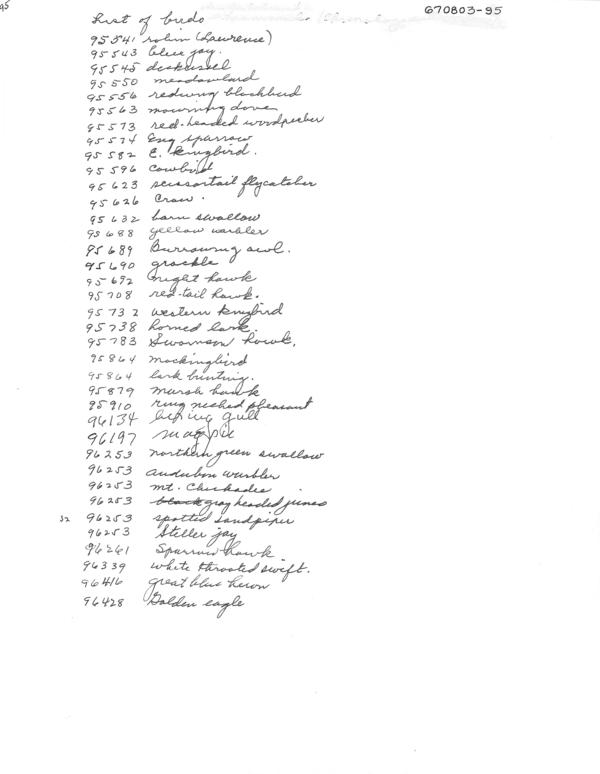 95
670803-95
List of birds
95541 robin (Lawrence)
95543 blue jay.
95545 dickcissel
95550 meadowlard
95556 redwing blackbird
95563 mourning dove
95573 red-headed woodpecker
95574 Eng sparrow
95582 E. kingbird.
95596 Cowbird
95623 scissortail flycatcher
95626 Crow.
95632 barn swallow
95688 yellow warbler
95689 Burrowing owl.
95690 grackle
95692 night hawk
95708 red-tail hawk.
95732 western kingbird
95738 horned lark.
95783 Swanson hawk.
95864 mockingbird
95864 lark bunting.
95879 marsh hawk
95910 ring necked pheasant
96134 gull
96197 magpie
96253 northern green swallow
96253 Audubon warbler
96253 mt. Chickadee
96253 black gray headed junco
32 96253 spotted sandpiper
96253 Steller jay
96261 Sparrow hawk.
96339 white throated swift.
96416 great blue heron
96428 Golden eagle